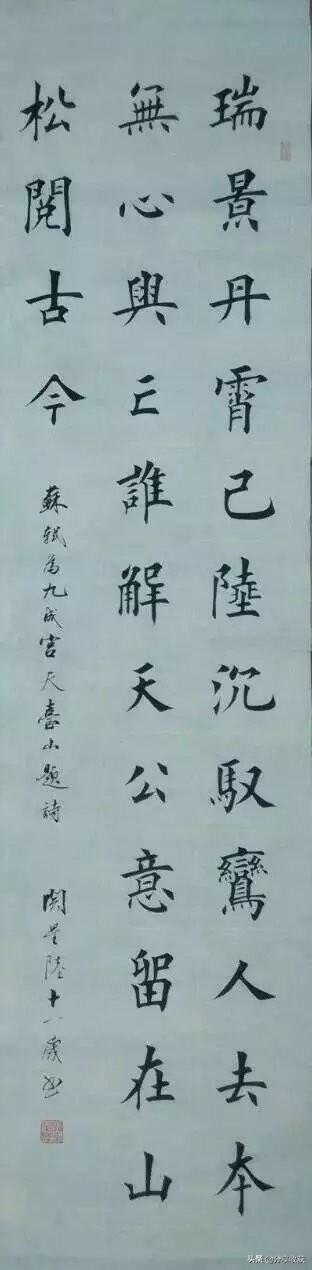 瑞景丹霄已陸沉馭鸞人去本
無心興亡誰解天公意留在山
松閱古今
蘇軾為九成宮天臺山題詩 陸十一歲書